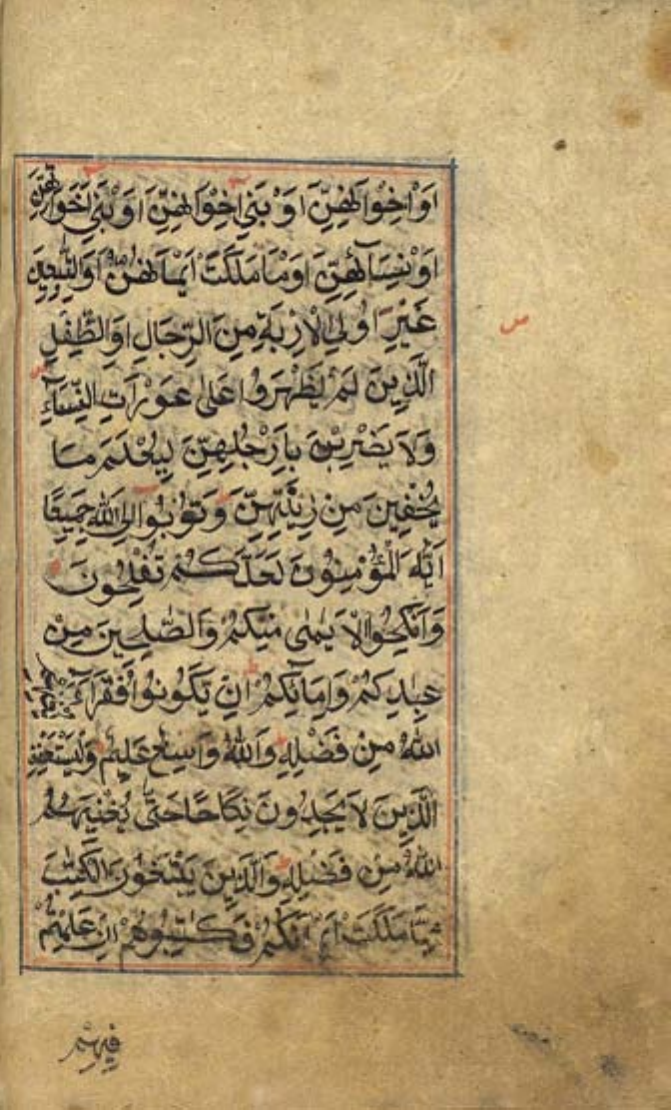 اَوْ اِخْوَانِهِنَّ اَوْ بَنِي اِخْوَانِهِنَّ اَوْ بَنِي اَخَوَاتِهِنَّ
اَوْ نِسَآئِهِنَّ اَوْ مَا مَلَكَتْ اَيْمَانُهُنَّ اَوِ التّٰبِعِينَ
غَيْرِ اُولِي الْاِرْبَةِ مِنَ الرِّجَالِ اَوِ الطِّفْلِ
الَّذِينَ لَمْ يَظْهَرُوا عَلٰى عَوْرَاتِ النِّسَآءِ
وَلَا يَضْرِبْنَ بِاَرْجُلِهِنَّ لِيُعْلَمَ مَا
يُخْفِينَ مِنْ زِينَتِهِنَّ وَتُوبُوا اِلَى اللّٰهِ جَمِيعًا
اَيُّهَ الْمُؤْمِنُونَ لَعَلَّكُمْ تُفْلِحُونَ
وَاَنْكِحُوا الْاَيَامٰى مِنْكُمْ وَالصّٰلِحِينَ مِنْ
عِبَادِكُمْ وَاِمَآئِكُمْ اِنْ يَكُونُوا فُقَرَآءَ يُغْنِهِمُ
اللّٰهُ مِنْ فَضْلِهِ وَاللّٰهُ وَاسِعٌ عَلِيمٌ وَلْيَسْتَعْفِفِ
الَّذِينَ لَا يَجِدُونَ نِكَاحًا حَتّٰى يُغْنِيَهُمُ
اللّٰهُ مِنْ فَضْلِهِ وَالَّذِينَ يَبْتَغُونَ الْكِتٰبَ
مِمَّا مَلَكَتْ اَيْمَانُكُمْ فَكَاتِبُوهُمْ اِنْ عَلِمْتُمْ
فِيهِمْ